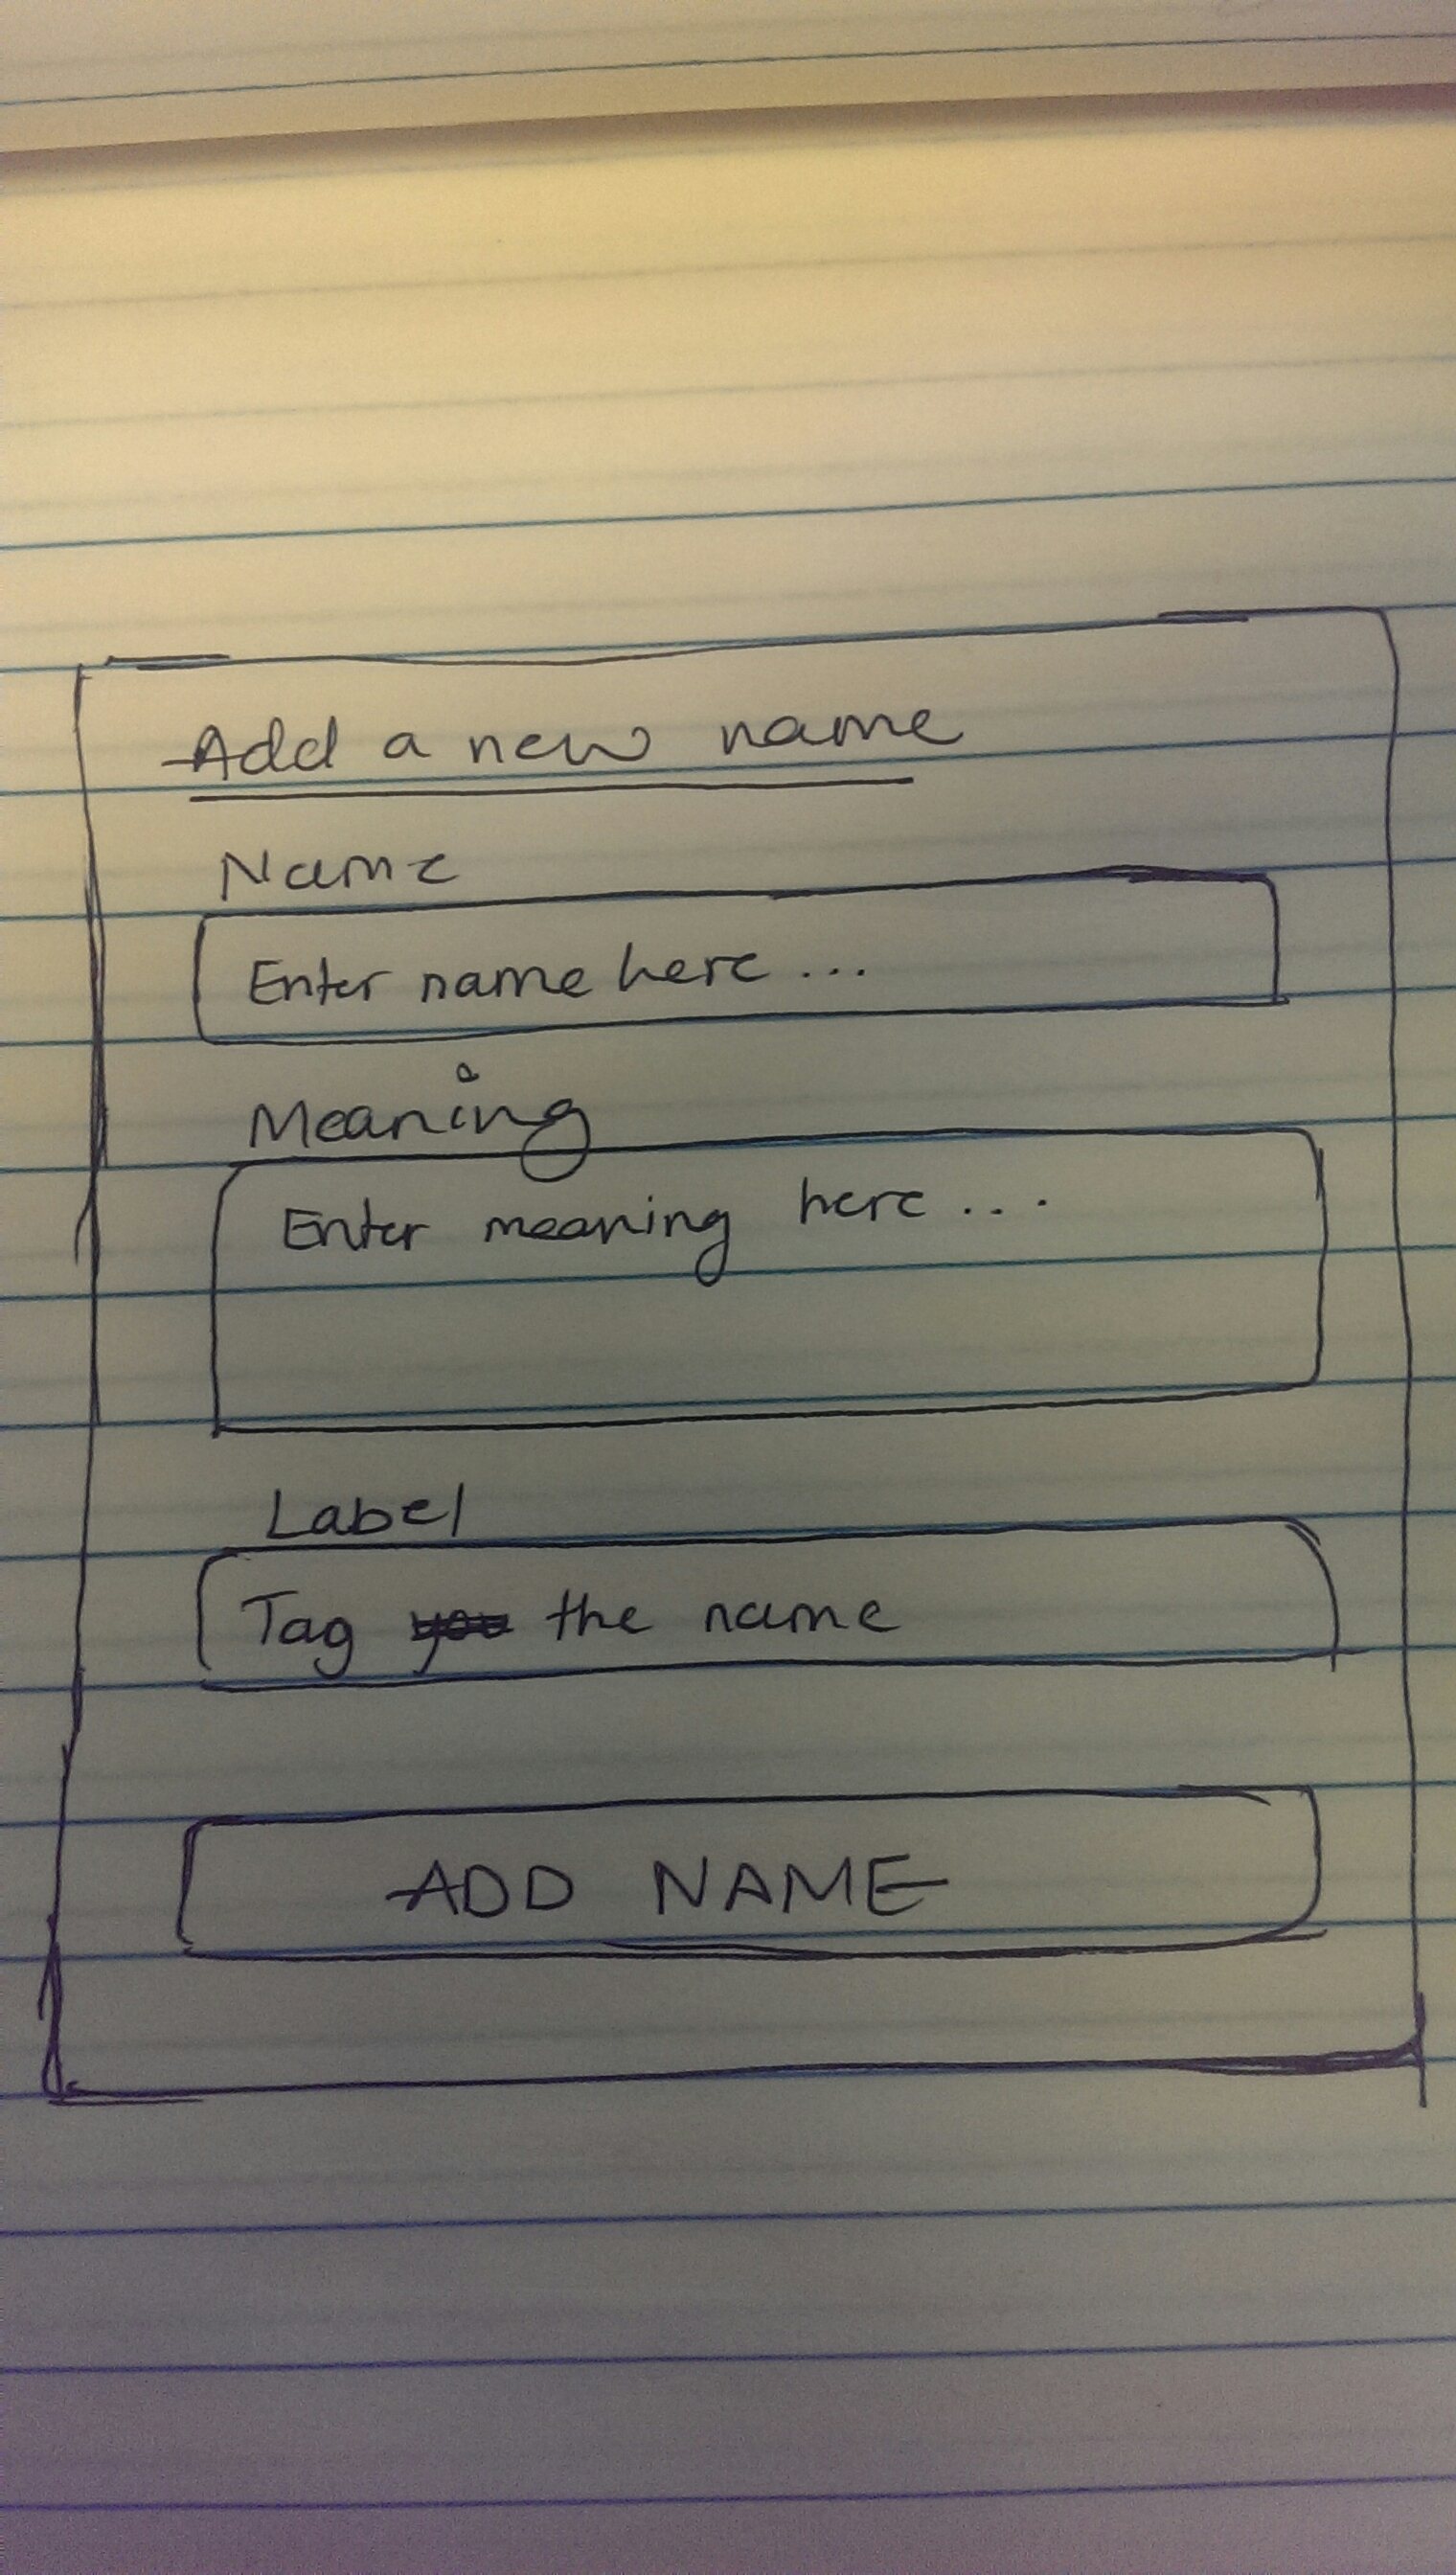 Add a new name
Name
Enter name here...
Meaning
Enter meaning here...
Label
Tag you the name
ADD NAME